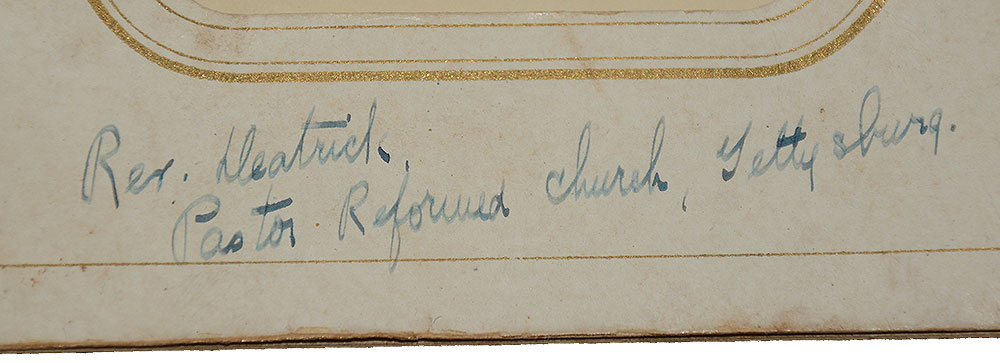 Rev. Deatrick,
Pastor Reformed church, Gettysburg.